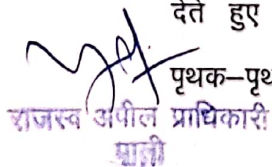 देते हुए
पृथक–पृथ
राजस्व अपील प्राधिकारी
पाली